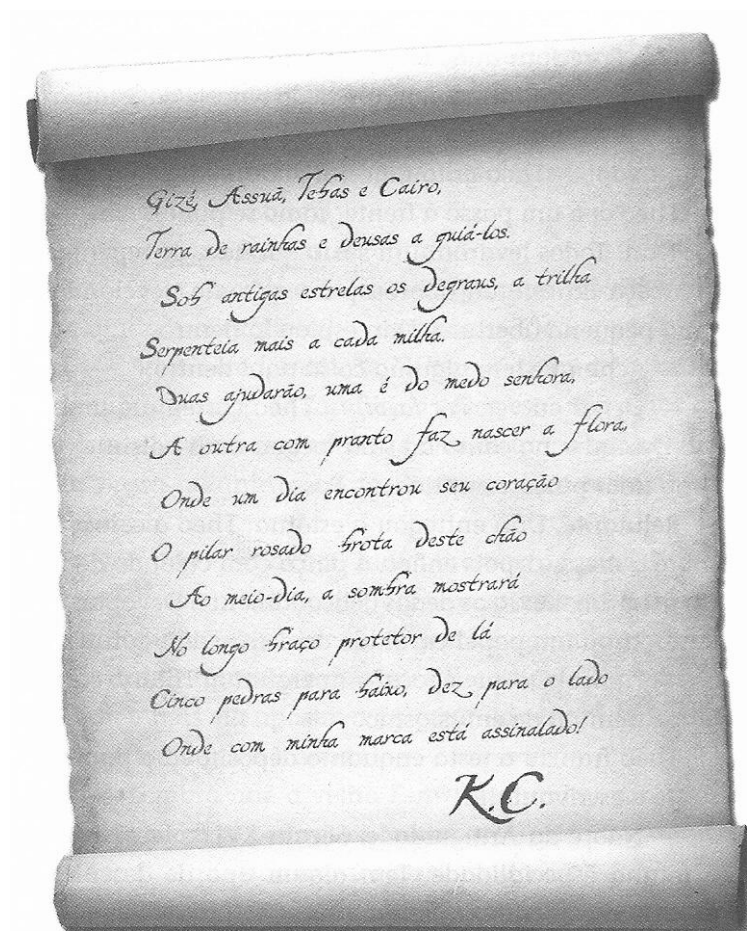 Gizé, Assuã, Tebas e Cairo,
Terra de rainhas e deusas a guiá-los.
Sob antigas estrelas os degraus, a trilha
Serpenteia mais a cada milha.
Duas ajudarão, uma é do medo senhora,
A outra com pranto faz nascer a flora,
Onde um dia encontrou seu coração
O pilar rosado brota deste chão
Ao meio-dia, a sombra mostrará
No longo braço protetor de lá
Cinco pedras para baixo, dez para o lado
Onde com minha marca está assinalado!
K.C.